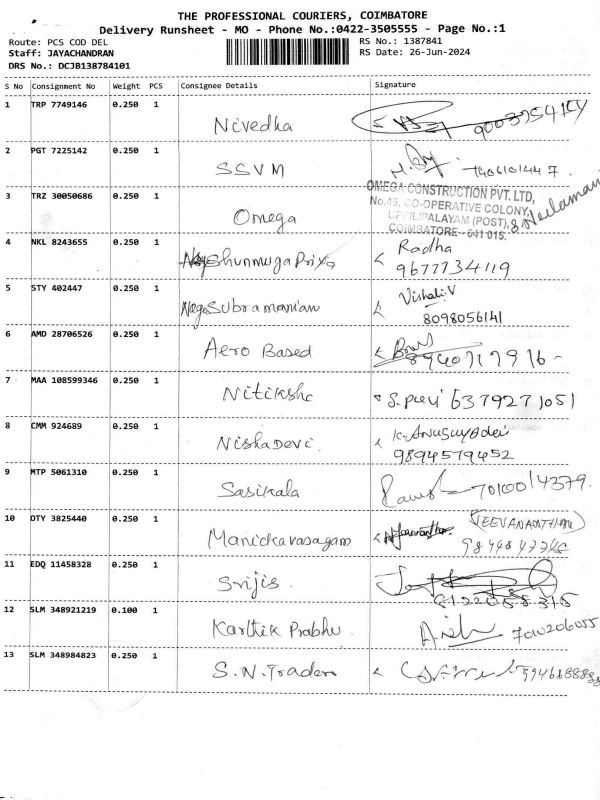 THE PROFESSIONAL COURIERS, COIMBATORE
Delivery Runsheet - MO - Phone No.:0422-3505555 - Page No.:1
Route: PCS COD DEL
Staff: JAYACHANDRAN
DRS No.: DCJB138784101
RS No.: 1387841
RS Date: 26-Jun-2024
S No Consignment No Weight PCS Consignee Details Signature
1 TRP 7749146 0.250 1 Nivedha
2 PGT 7225142 0.250 1 SSVM
3 TRZ 30050686 0.250 1 Omega
OMEGA CONSTRUCTION PVT. LTD,
No.45, CO-OPERATIVE COLONY,
UPPILIPALAYAM (POST),
COIMBATORE - 641 015.
4 NKL 8243655 0.250 1 Shunmuga Priya Radha
9677734119
5 STY 402447 0.250 1 Subramaniam Vishali.V
8098056141
6 AMD 28706526 0.250 1 Aero Based
7 MAA 108599346 0.250 1 Nitiksha 6379271051
8 CMM 924689 0.250 1 NishaDevi K. Anusuyadevi
9894579452
9 MTP 5061310 0.250 1 Sasikala 7010014379
10 OTY 3825440 0.250 1 Manickavasagam
11 EDQ 11458328 0.250 1 Srijis
12 SLM 348921219 0.100 1 Karthik Prabhu
13 SLM 348984823 0.250 1 S.N.Traders